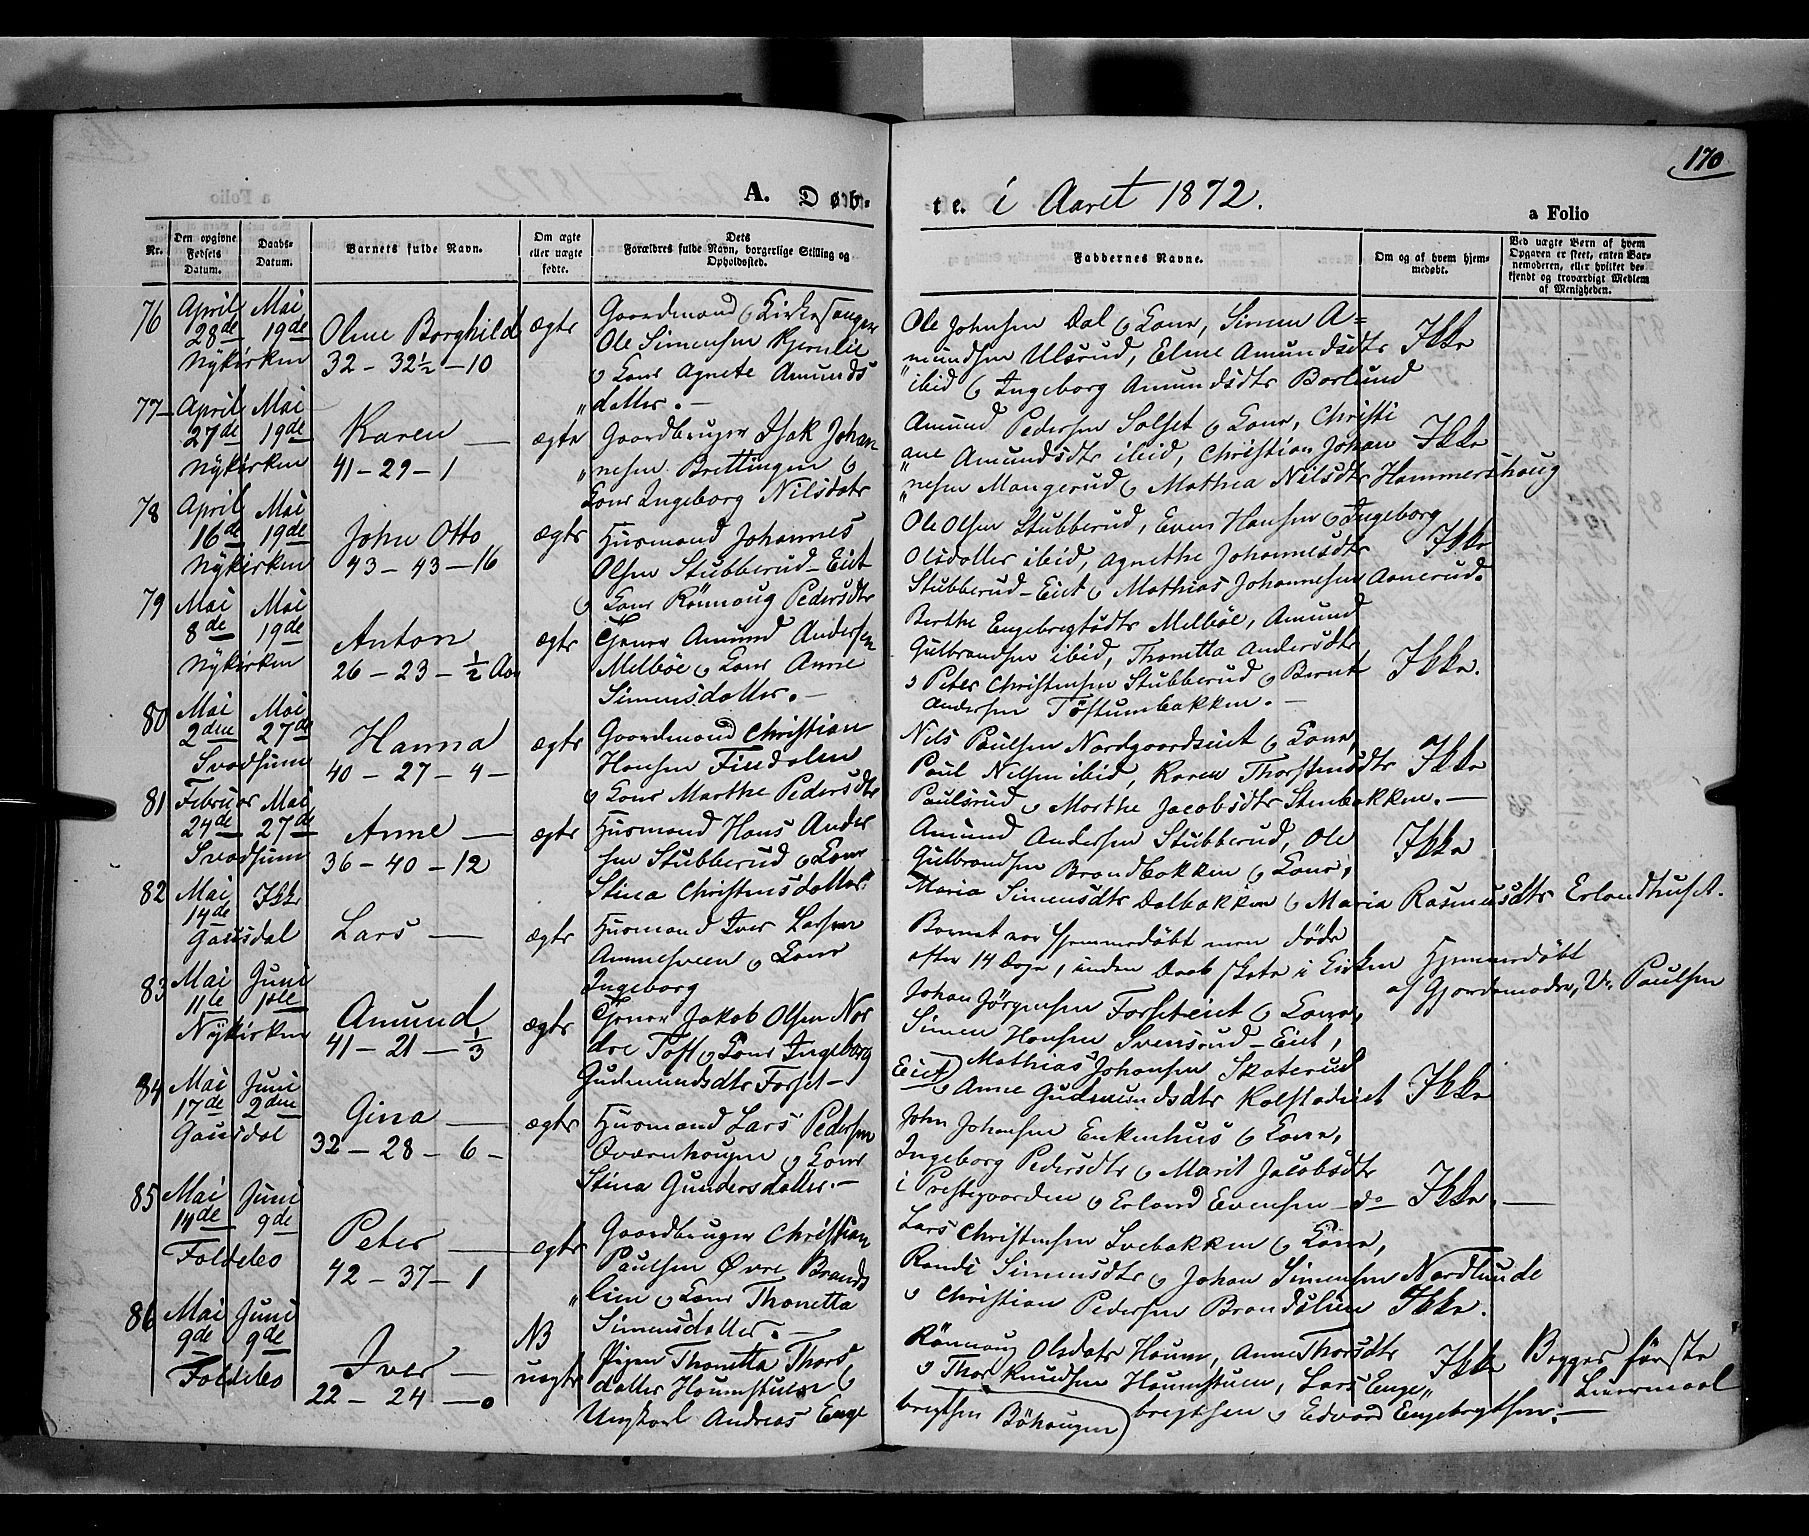 170
A. Døb-
te. i Aaret 1872.
a Folio
Nr.
Den opgivne Fødsels Datum.
Daabs-Datum.
Barnets fulde Navn.
Om ægte eller uægte fødte.
Dets Forældres fulde Navn, borgerlige Stilling og Opholdssted.
Faddernes Navne.
Om og af hvem hjemmedøbt.
Ved uægte Børn af hvem Opgaven er skeet, enten Barnemoderen, eller hvilket bekjendt og troværdigt Medlem af Menigheden.
76 April 28de Mai 19de Nykirken
Oline Borghild
32 - 32½ - 10
ægte
Gaardmand & Kirkesanger
Ole Simensen Kjernlie
& Kone Agnete Amunds
" datter. -
Ole Johnsen Dal & Kone, Simen A=
" mundsen Ulsrud, Eline Amundsdtr
ibid & Ingeborg Amundsdtr Borlund
Ikke
77 - April 27de Mai 19de Nykirken
Karen -
41 - 29 - 1
ægte
Gaardbruger Isak Johan
" nesen Brettingen &
Kone Ingeborg Nilsdatr
Amund Pedersen Solset & Kone, Christi
ane Amundsdtr ibid, Christian Johan
" nesen Mangerud & Mathea Nilsdtr Hammershaug
Ikke
78 April 16de Mai 19de Nykirken
John Otto
43 - 43 - 16
ægte
Husmand Johannes
Olsen Stubberud-Eiet
& Kone Rönnaug Pedersdtr
Ole Olsen Stubberud, Even Hansen & Ingeborg
Olsdatter ibid, Agnethe Johannesdtr
Stubberud-Eiet & Mathias Johannesen Aanerud.
Ikke
79 Mai 8de Mai 19de Nykirken
Anton
26 - 23 - ½ Aar
ægte
Tjener Amund Andersen
Melböe & Kone Anne
Simensdatter. -
Berthe Engebregtsdtr Melböe, Amund
Gulbrandsen ibid, Thonetta Andersdtr
& Peter Christensen Stubberud & Bernt
Andersen Töftumbakken. -
Ikke.
80 Mai 2den Mai 27de Svadsum
Hanna
40 - 27 - 4 -
ægte
Gaardmand Christian
Hansen Fiedalen
& Kone Marthe Pedersdtr
Nils Paulsen Nordgaardseiet & Kone,
Paul Nilsen ibid, Karen Thorstensdtr
Paulsrud & Marthe Jacobsdtr Stenbakken. -
Ikke
81 Februar 24de Mai 27de Svadsum
Anne -
36 - 40 - 12
ægte
Husmand Hans Ander
sen Stubberud & Kone
Stina Christensdatter.
Amund Andersen Stubberud, Ole
Gulbrandsen Brandbakken & Kone,
Maria Simensdtr Dalbakken & Maria Rasmusdtr Erlandhuset.
Ikke
82 Mai 14de Ikke Gausdal
Lars -
ægte
Husmand Iver Larsen
Amnesveen & Kone
Ingeborg
Barnet var hjemmedöbt men döde
efter 14 Dage, inden Daab skete i Kirken
Hjemmedöbt
af Gjordemoder, U. Paulsen
83 Mai 11te Juni 1ste Nykirken
Amund
41 - 21 - ⅓
ægte
Tjener Jakob Olsen Nor
dre Toft & Kone Ingeborg
Gudmundsdtr Forset -
Johan Jörgensen Forseteiet & Kone,
Simen Hansen Svensrud-Eiet,
Eiet) Mathias Johansen Skaterud
& Anne Gudmundsdtr Kolstadeiet
Ikke
84 Mai 17de Juni 2den Gausdal
Gina -
32 - 28 - 6 -
ægte
Husmand Lars Pedersen
Qværnhaugen & Kone
Stina Gundersdatter. -
John Johansen Enkenhus & Kone,
Ingeborg Pedersdtr & Marit Jacobsdtr
i Prestegaarden & Erland Evensen - do
Ikke. -
85 Mai 14de Juni 9de Foldebo
Peter -
42 - 37 - 1
ægte
Gaardbruger Christian
Paulsen Øvre Brands
" lien & Kone Thonetta
Simensdatter. -
Lars Christensen Svebakken & Kone,
Randi Simensdtr & Johan Simensen Nordlunde
& Christian Pedersen Brandslien
Ikke.
86 Mai 9de Juni 9de Foldebo
Iver -
22 - 24 - 0
NB
uægte
Pigen Thonetta Thors
datter Haumstuen &
Ungkarl Andreas Enge
bregtsen Böhaugen)
Rönnaug Olsdatr Haum, Anne Thorsdtr
& Thor Knudsen Haumstuen, Lars Enge"
bregtsen & Edvard Engebregtsen. -
Ikke
Begges förste
Leiermaal